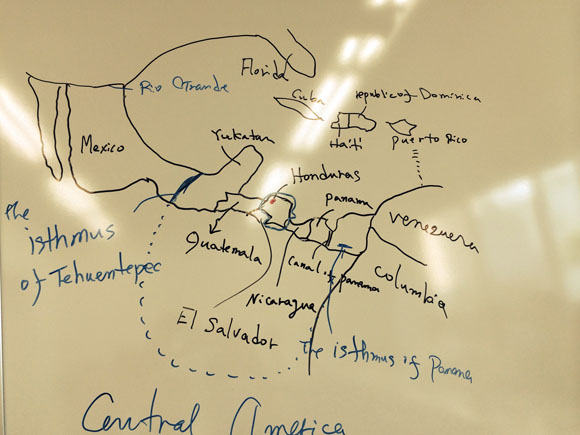 Florida
Rio Grande
Cuba
republic of Dominica
Mexico
Yukatan
Haiti
puerto Rico
Honduras
panama
The
isthmus
of Tehuentepec
Guatemala
venezuera
canal of panama
columbia
Nicaragua
El Salvador
The isthmus of Panama
Central America